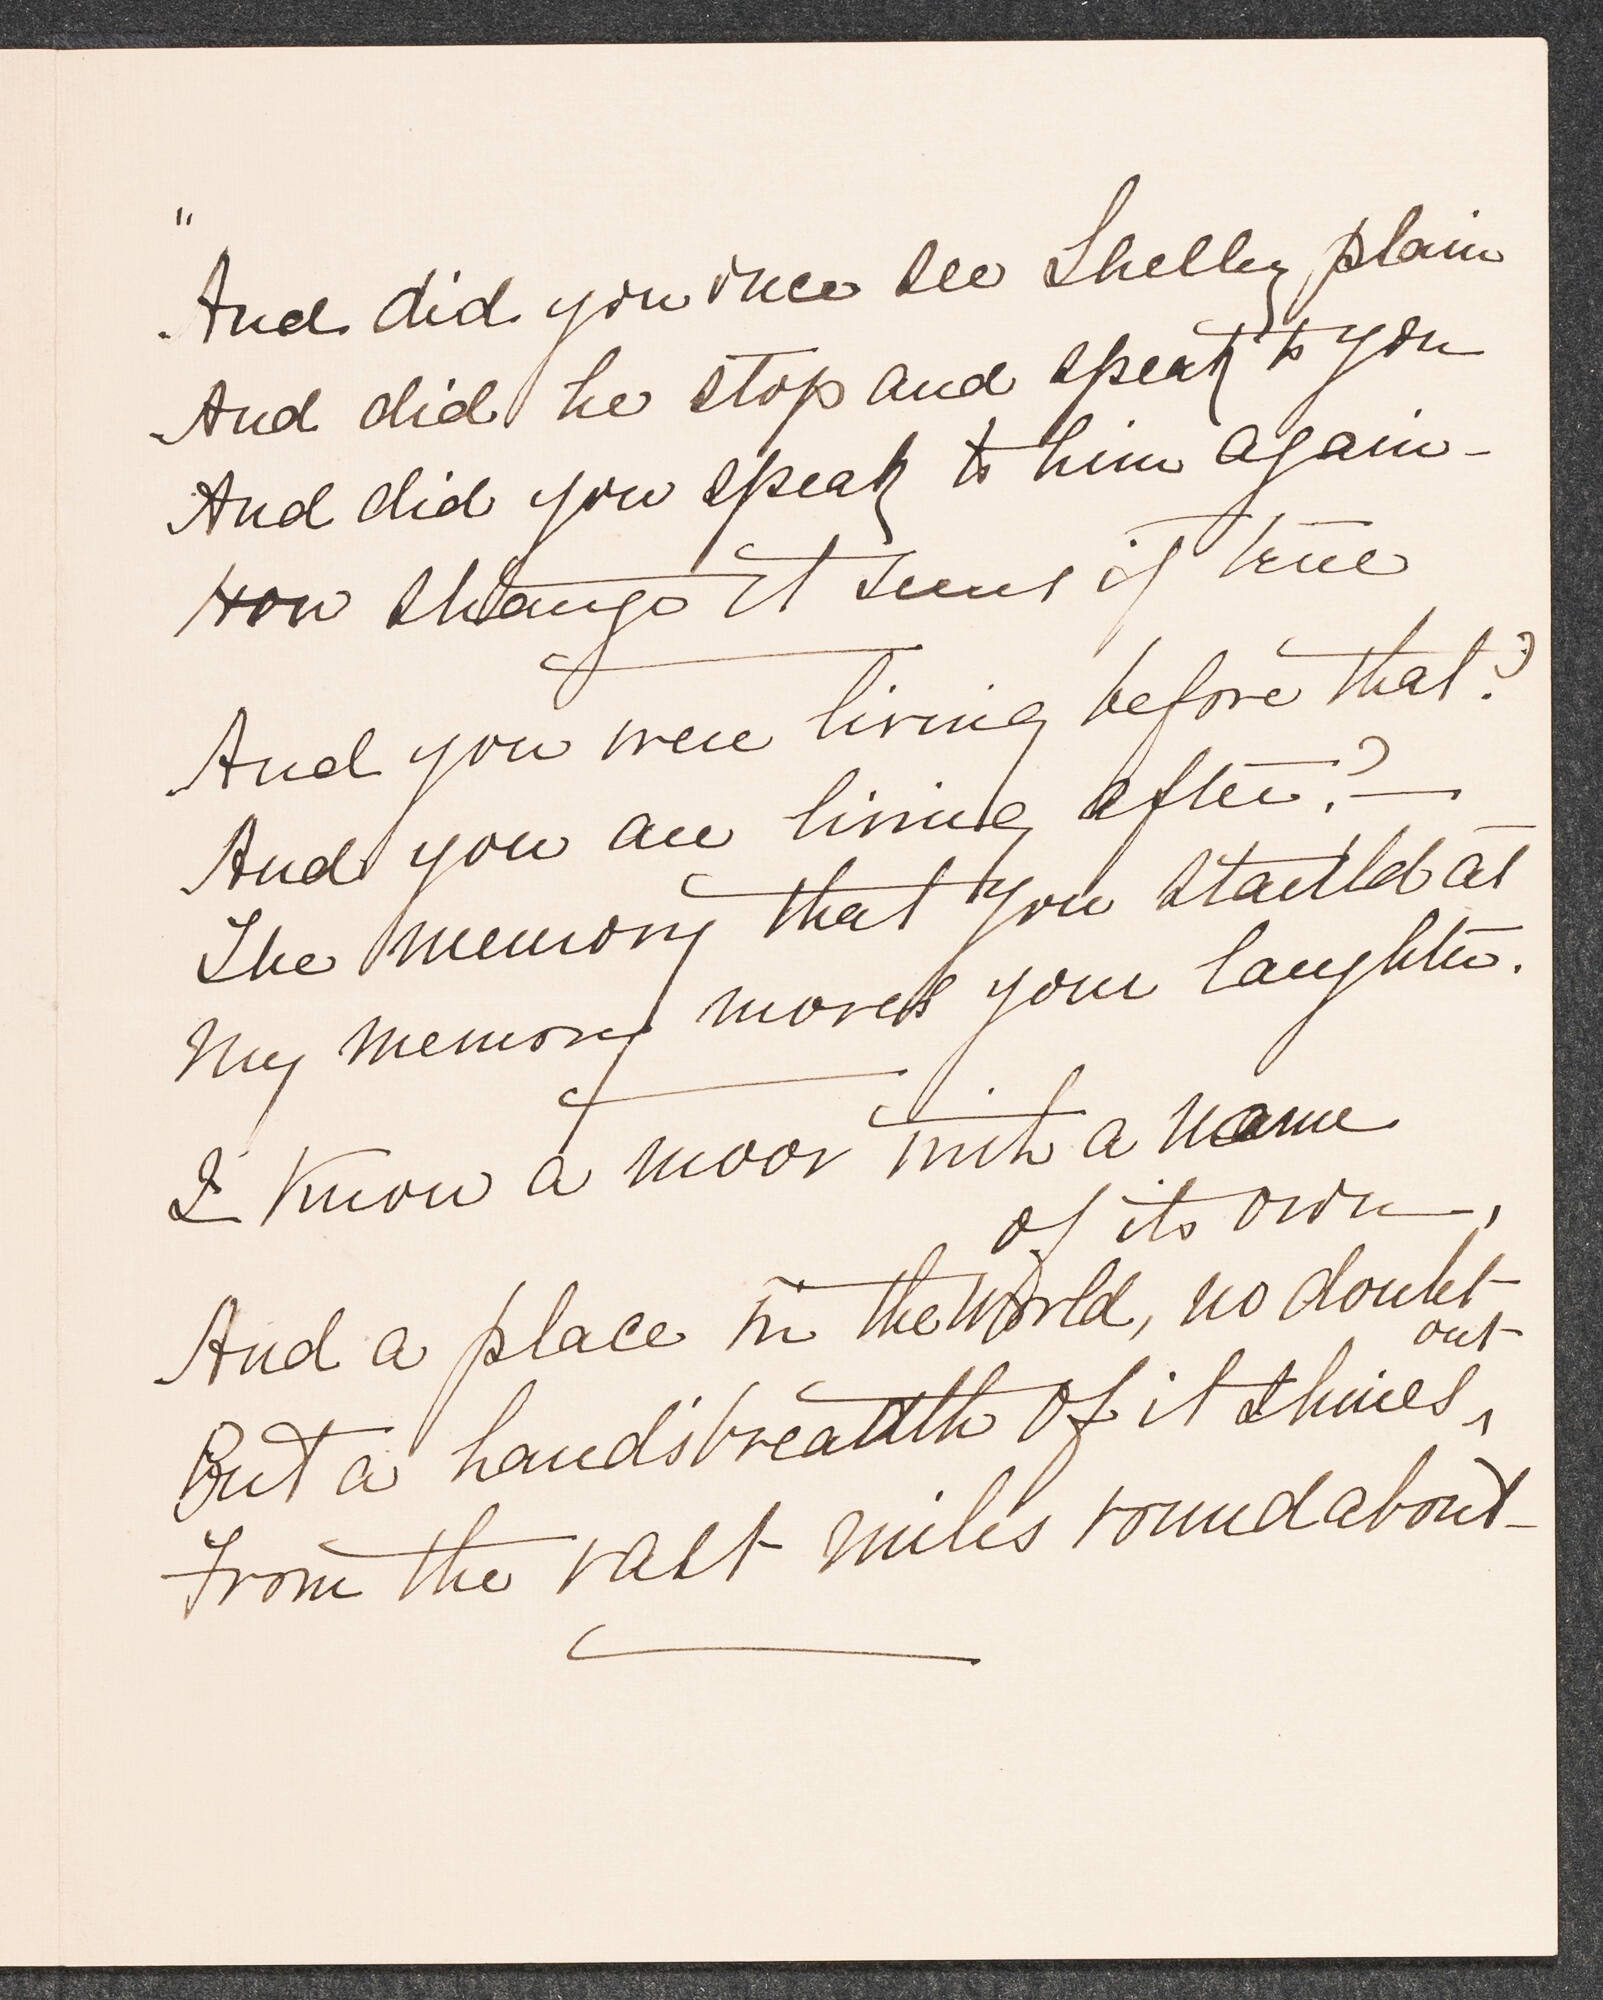 "
And did you once see Shelley plain
And did he stop and speak to you
And did you speak to him again -
How strange it seems if true
And you were living before that?
And you are living after? —
The memory that you startld at
My memory moves your laughter.
I know a moor with a name
of its own,
And a place in the world, no doubt
out
But a hand's breadth of it shines,
From the vast miles roundabout -